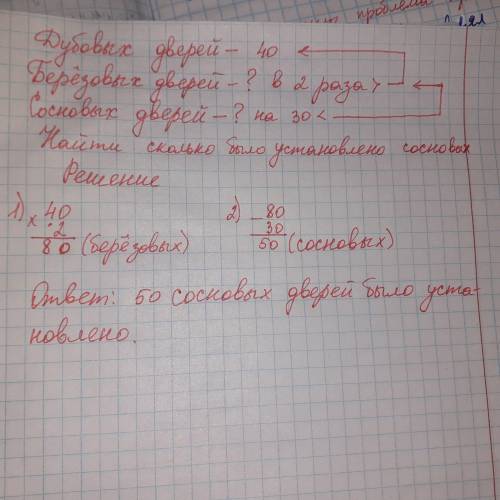 проблема
Дубовых дверей – 40
Берёзовых дверей – ? в 2 раза >
Сосновых дверей – ? на 30 <
Найти сколько было установлено сосновых
Решение
1) х 40 2) – 80
2 30
80 (берёзовых) 50 (сосновых)
Ответ: 50 сосновых дверей было уста-
новлено.